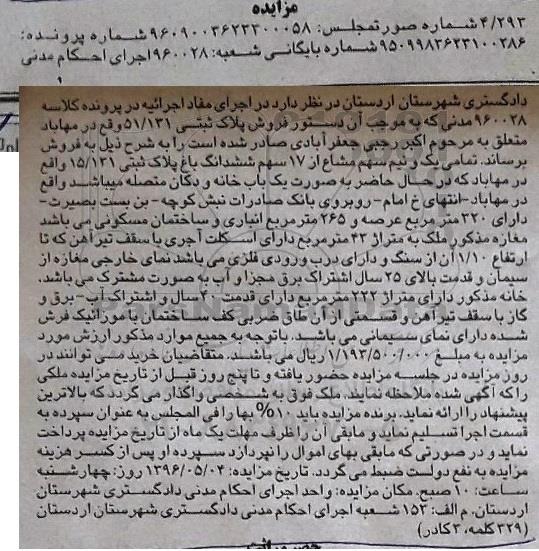 مزایده
۴/۲۹۳ شماره صورتمجلس: ۹۶۰۹۰۰۳۶۲۳۳۰۰۰۵۸ شماره پرونده:
۹۵۰۹۹۸۳۶۲۳۱۰۰۲۸۶ شماره بایگانی شعبه: ۹۶۰۰۲۸ اجرای احکام مدنی
دادگستری شهرستان اردستان در نظر دارد در اجرای مفاد اجرائیه در پرونده کلاسه
۹۶۰۰۲۸ مدنی که به موجب آن دستور فروش پلاک ثبتی ۵۱/۱۳۱ وقع در مهاباد
متعلق به مرحوم اکبر رجبی جعفرآبادی صادر شده است را به شرح ذیل به فروش
برساند. تمامی یک و نیم سهم مشاع از ۱۷ سهم ششدانگ باغ پلاک ثبتی ۱۵/۱۳۱ واقع
در مهاباد که در حال حاضر به صورت یک باب خانه و دکان متصله میباشد واقع
در مهاباد-انتهای خ امام-روبروی بانک صادرات نبش کوچه-بن بست بصیرت-
دارای ۳۲۰ متر مربع عرصه و ۲۶۵ متر مربع انباری و ساختمان مسکونی می باشد
مغازه مذکور ملک به متراژ ۴۳ متر مربع دارای اسکلت آجری با سقف تیرآهن که تا
ارتفاع ۱/۱۰ آن از سنگ و دارای درب ورودی فلزی می باشد نمای خارجی مغازه از
سیمان و قدمت بالای ۲۵ سال اشتراک برق مجزا و آب به صورت مشترک می باشد.
خانه مذکور دارای متراژ ۲۲۲ متر مربع دارای قدمت ۴۰ سال و اشتراک آب-برق و
گاز با سقف تیرآهن و قسمتی از آن طاق ضربی کف ساختمان با موزائیک فرش
شده دارای نمای سیمانی می باشد. باتوجه به جمیع موارد مذکور ارزش مورد
مزایده به مبلغ ۱/۱۹۳/۵۰۰/۰۰۰ ریال می باشد. متقاضیان خرید می توانند در
روز مزایده در جلسه مزایده حضور یافته و تا پنج روز قبل از تاریخ مزایده ملکی
را که آگهی شده ملاحظه نمایند. ملک فوق به شخصی واگذار می گردد که بالاترین
پیشنهاد را ارائه نماید. برنده مزایده باید ۱۰% بها را فی المجلس به عنوان سپرده به
قسمت اجرا تسلیم نماید و مابقی آن را ظرف مهلت یک ماه از تاریخ مزایده پرداخت
نماید و در صورتی که مابقی بهای اموال را نپردازد سپرده او پس از کسر هزینه
مزایده به نفع دولت ضبط می گردد. تاریخ مزایده: ۱۳۹۶/۰۵/۰۴ روز: چهارشنبه
ساعت: ۱۰ صبح. مکان مزایده: واحد اجرای احکام مدنی دادگستری شهرستان
اردستان. م الف: ۱۵۳ شعبه اجرای احکام مدنی دادگستری شهرستان اردستان
(۳۲۹ کلمه، ۳ کادر)